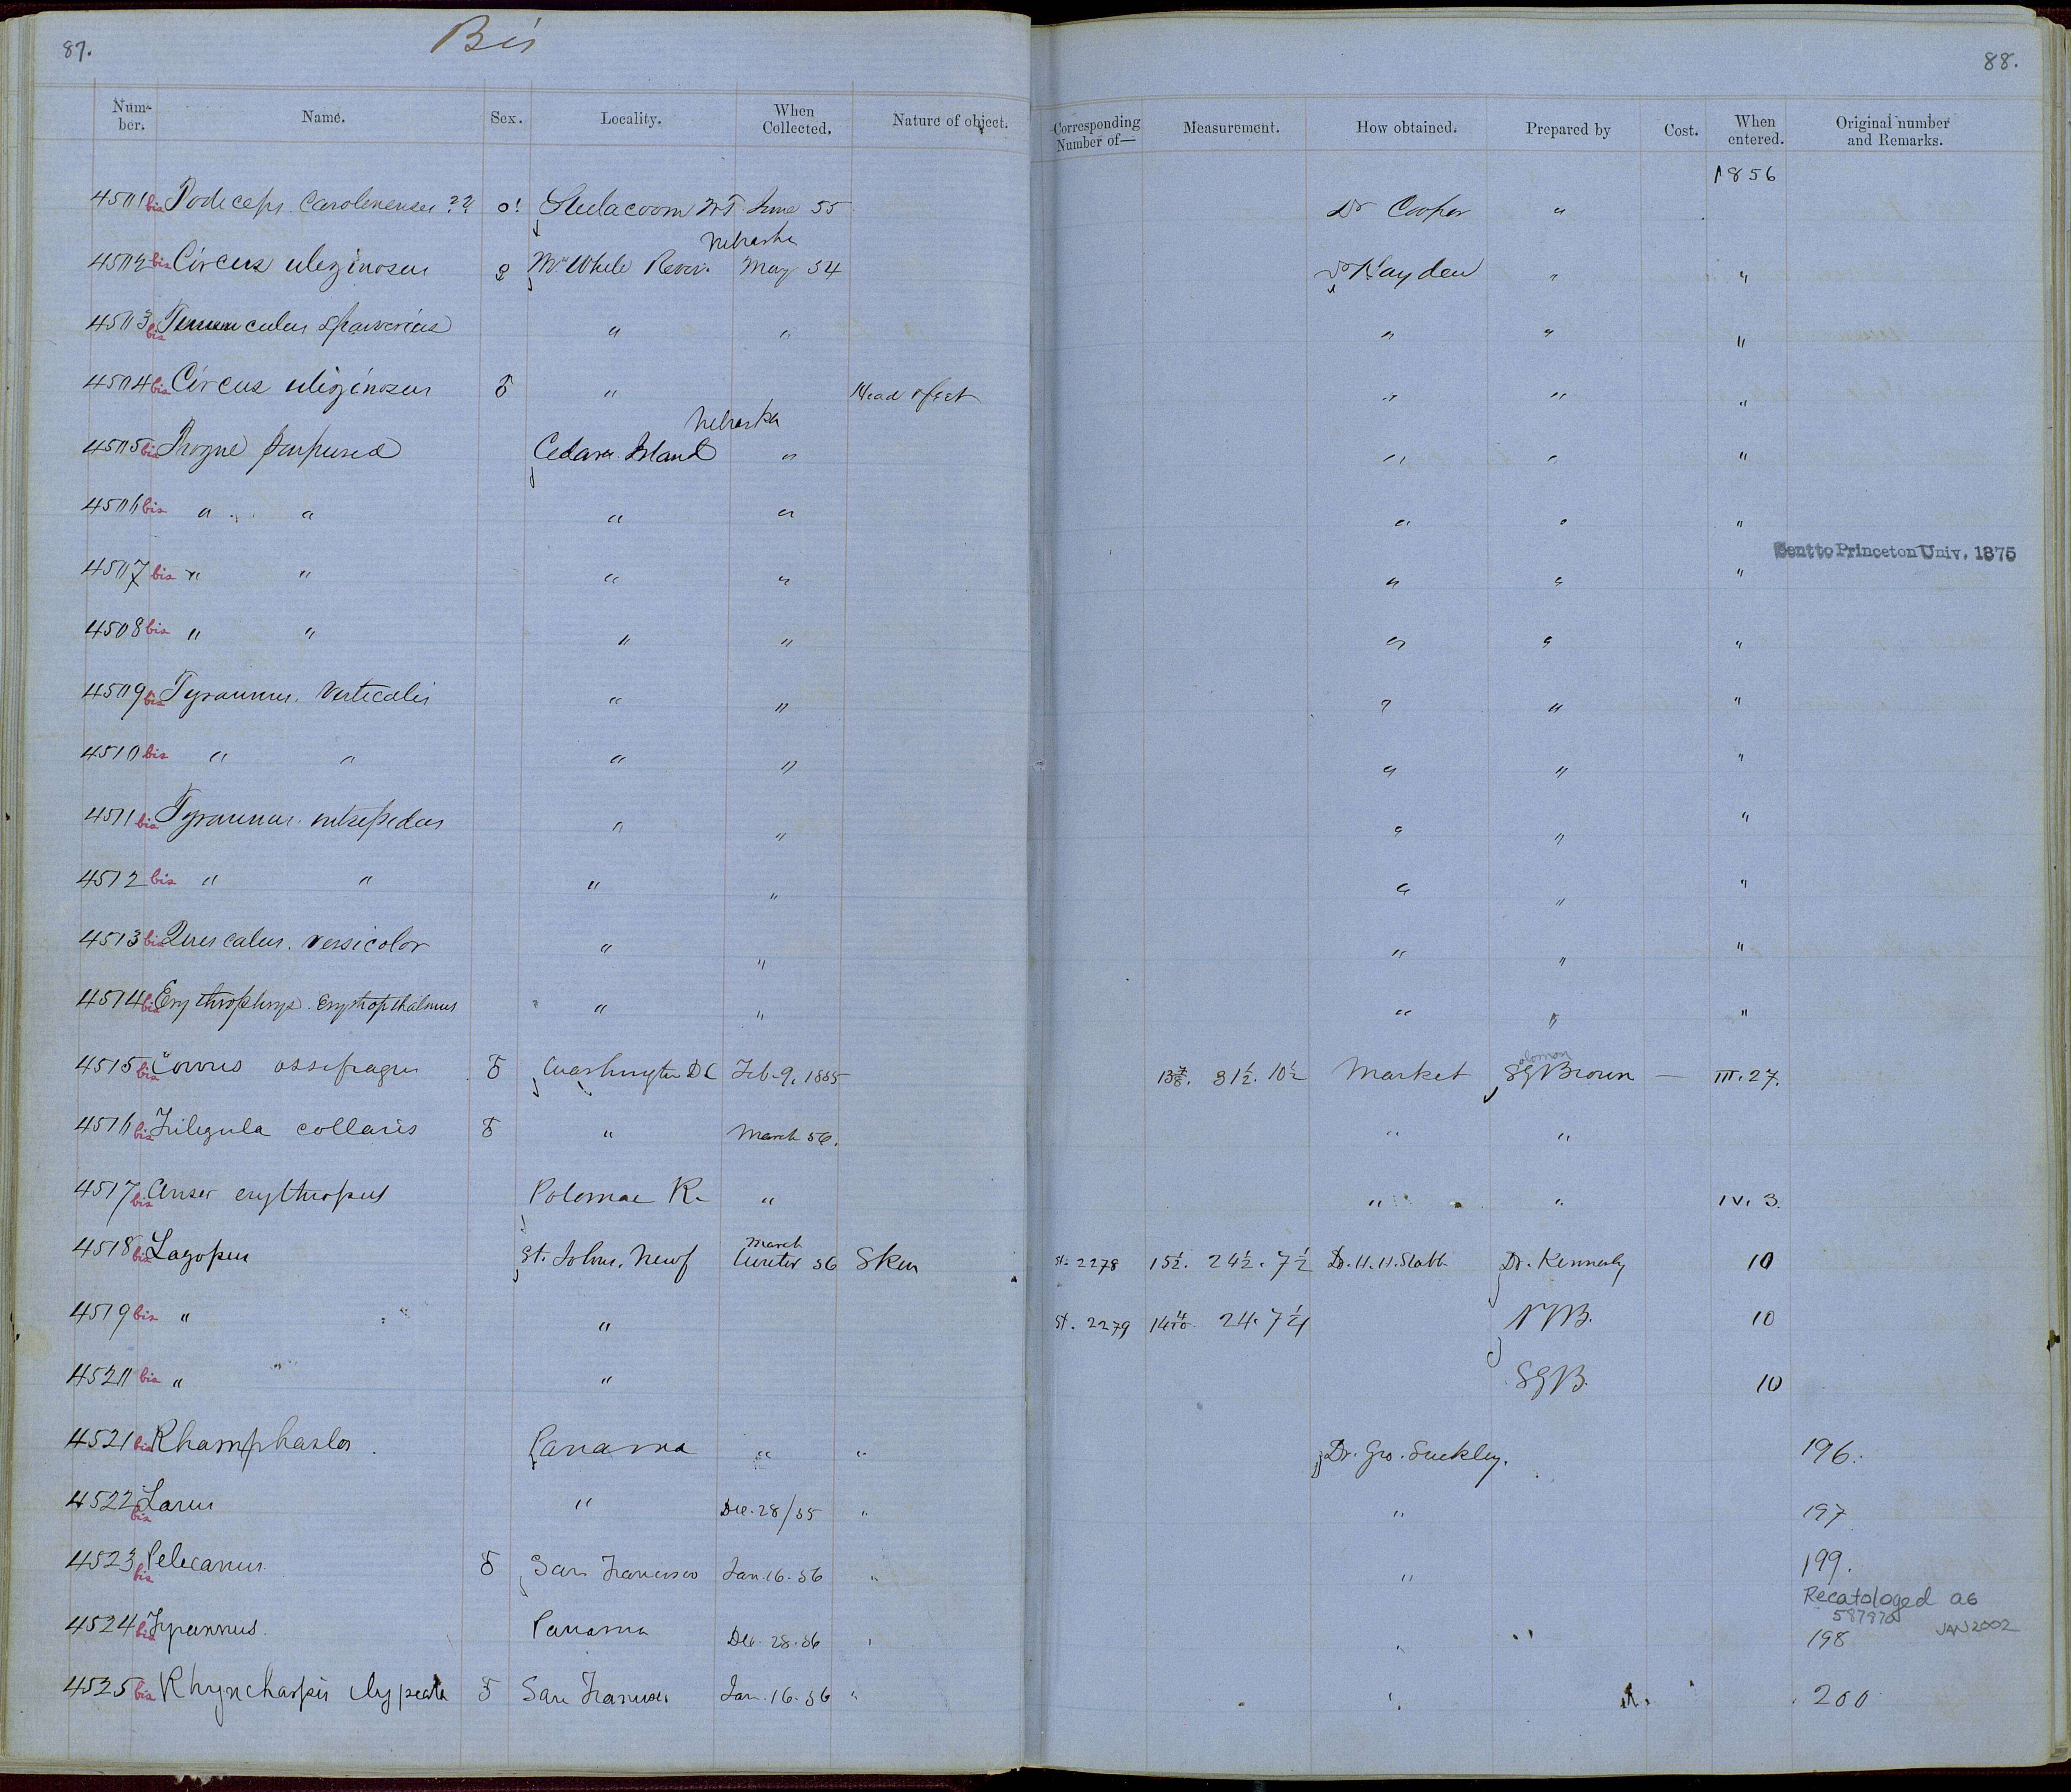 87.
Bis
88.
Num-
ber.
Name.
Sex.
Locality.
When
Collected.
Nature of object.
Corresponding
Number of—
Measurement.
How obtained.
Prepared by
Cost.
When
entered.
Original number
and Remarks.
1856
4501 bis Podiceps. Carolinensis ?? o! Steilacoom WT June 55 Dr Cooper "
Nebraska
4502 bis Circus uliginosus ♀ Mo White River. May 54 Dr Hayden " "
4503 bis Tinnunculus sparverius " " " " "
4504 bis Circus uliginosus ♂ " Head & feet " " "
Nebraska
4505 bis Progne purpurea Cedar Island " " " "
4506 bis " " " " " " "
Sent to Princeton Univ. 1875
4507 bis " " " " " " "
4508 bis " " " " " " "
4509 bis Tyrannus. Verticalis " " " " "
4510 bis " " " " " " "
4511 bis Tyrannus. intrepidus " " " " "
4512 bis " " " " " " "
4513 bis Quiscalus. versicolor " " " " "
4514 bis Erythrophrys. Erythopthalmus " " " " "
Solomon
4515 bis Corvus ossifragus ♂ Washington DC Feb. 9. 1855 13 7/8. 31 1/2. 10 1/2 Market SGBrown — III. 27.
4516 bis Fuligula collaris ♂ " March 56. " "
4517 bis Anser erythropus Potomac R. " " " IV. 3.
March
4518 bis Lagopus St. Johns. Newf Winter 56 Skin St. 2278 15 1/2. 24 1/2. 7 1/2 Dr. H. H. Stabb Dr. Kennerly 10
4519 bis " " St. 2279 24. 7 1/4 10
4520 bis " " SGB. 10
4521 bis Rhamphastos. Panama " " Dr. Geo. Suckley. 196.
4522 bis Larus " Dec. 28/55 " " 197
4523 bis Pelecanus. ♂ San Francisco Jan. 16. 56 " " 199.
Recatologed as
587970 JAN 2002
4524 bis Tyrannus. Panama Dec. 28. 56 " " " 198
4525 bis Rhynchaspis clypeata ♂ San Francisco Jan. 16. 56 " " 200